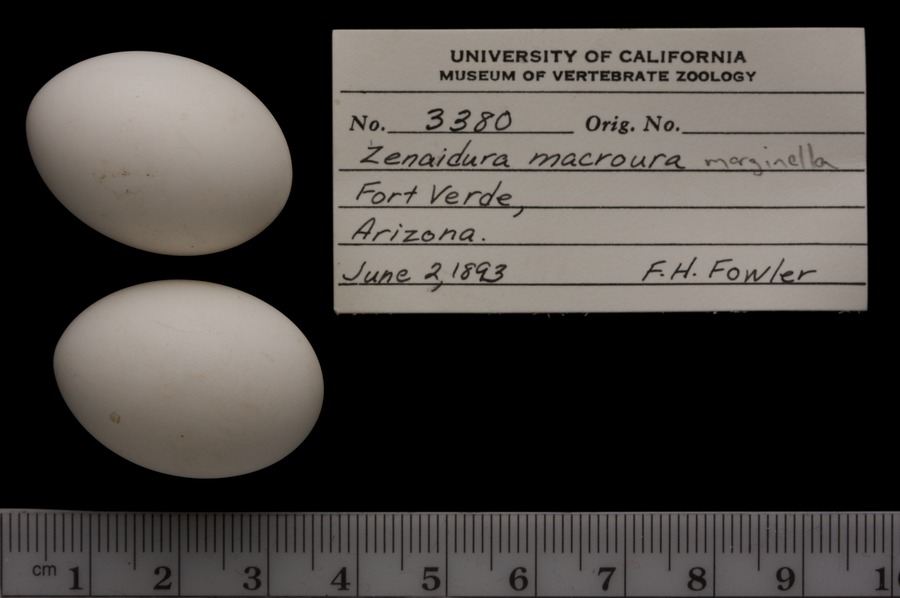 UNIVERSITY OF CALIFORNIA
MUSEUM OF VERTEBRATE ZOOLOGY
No. 3380 Orig. No.
Zenaidura macroura marginella
Fort Verde,
Arizona.
June 2, 1893 F.H. Fowler
cm 1 2 3 4 5 6 7 8 9 1